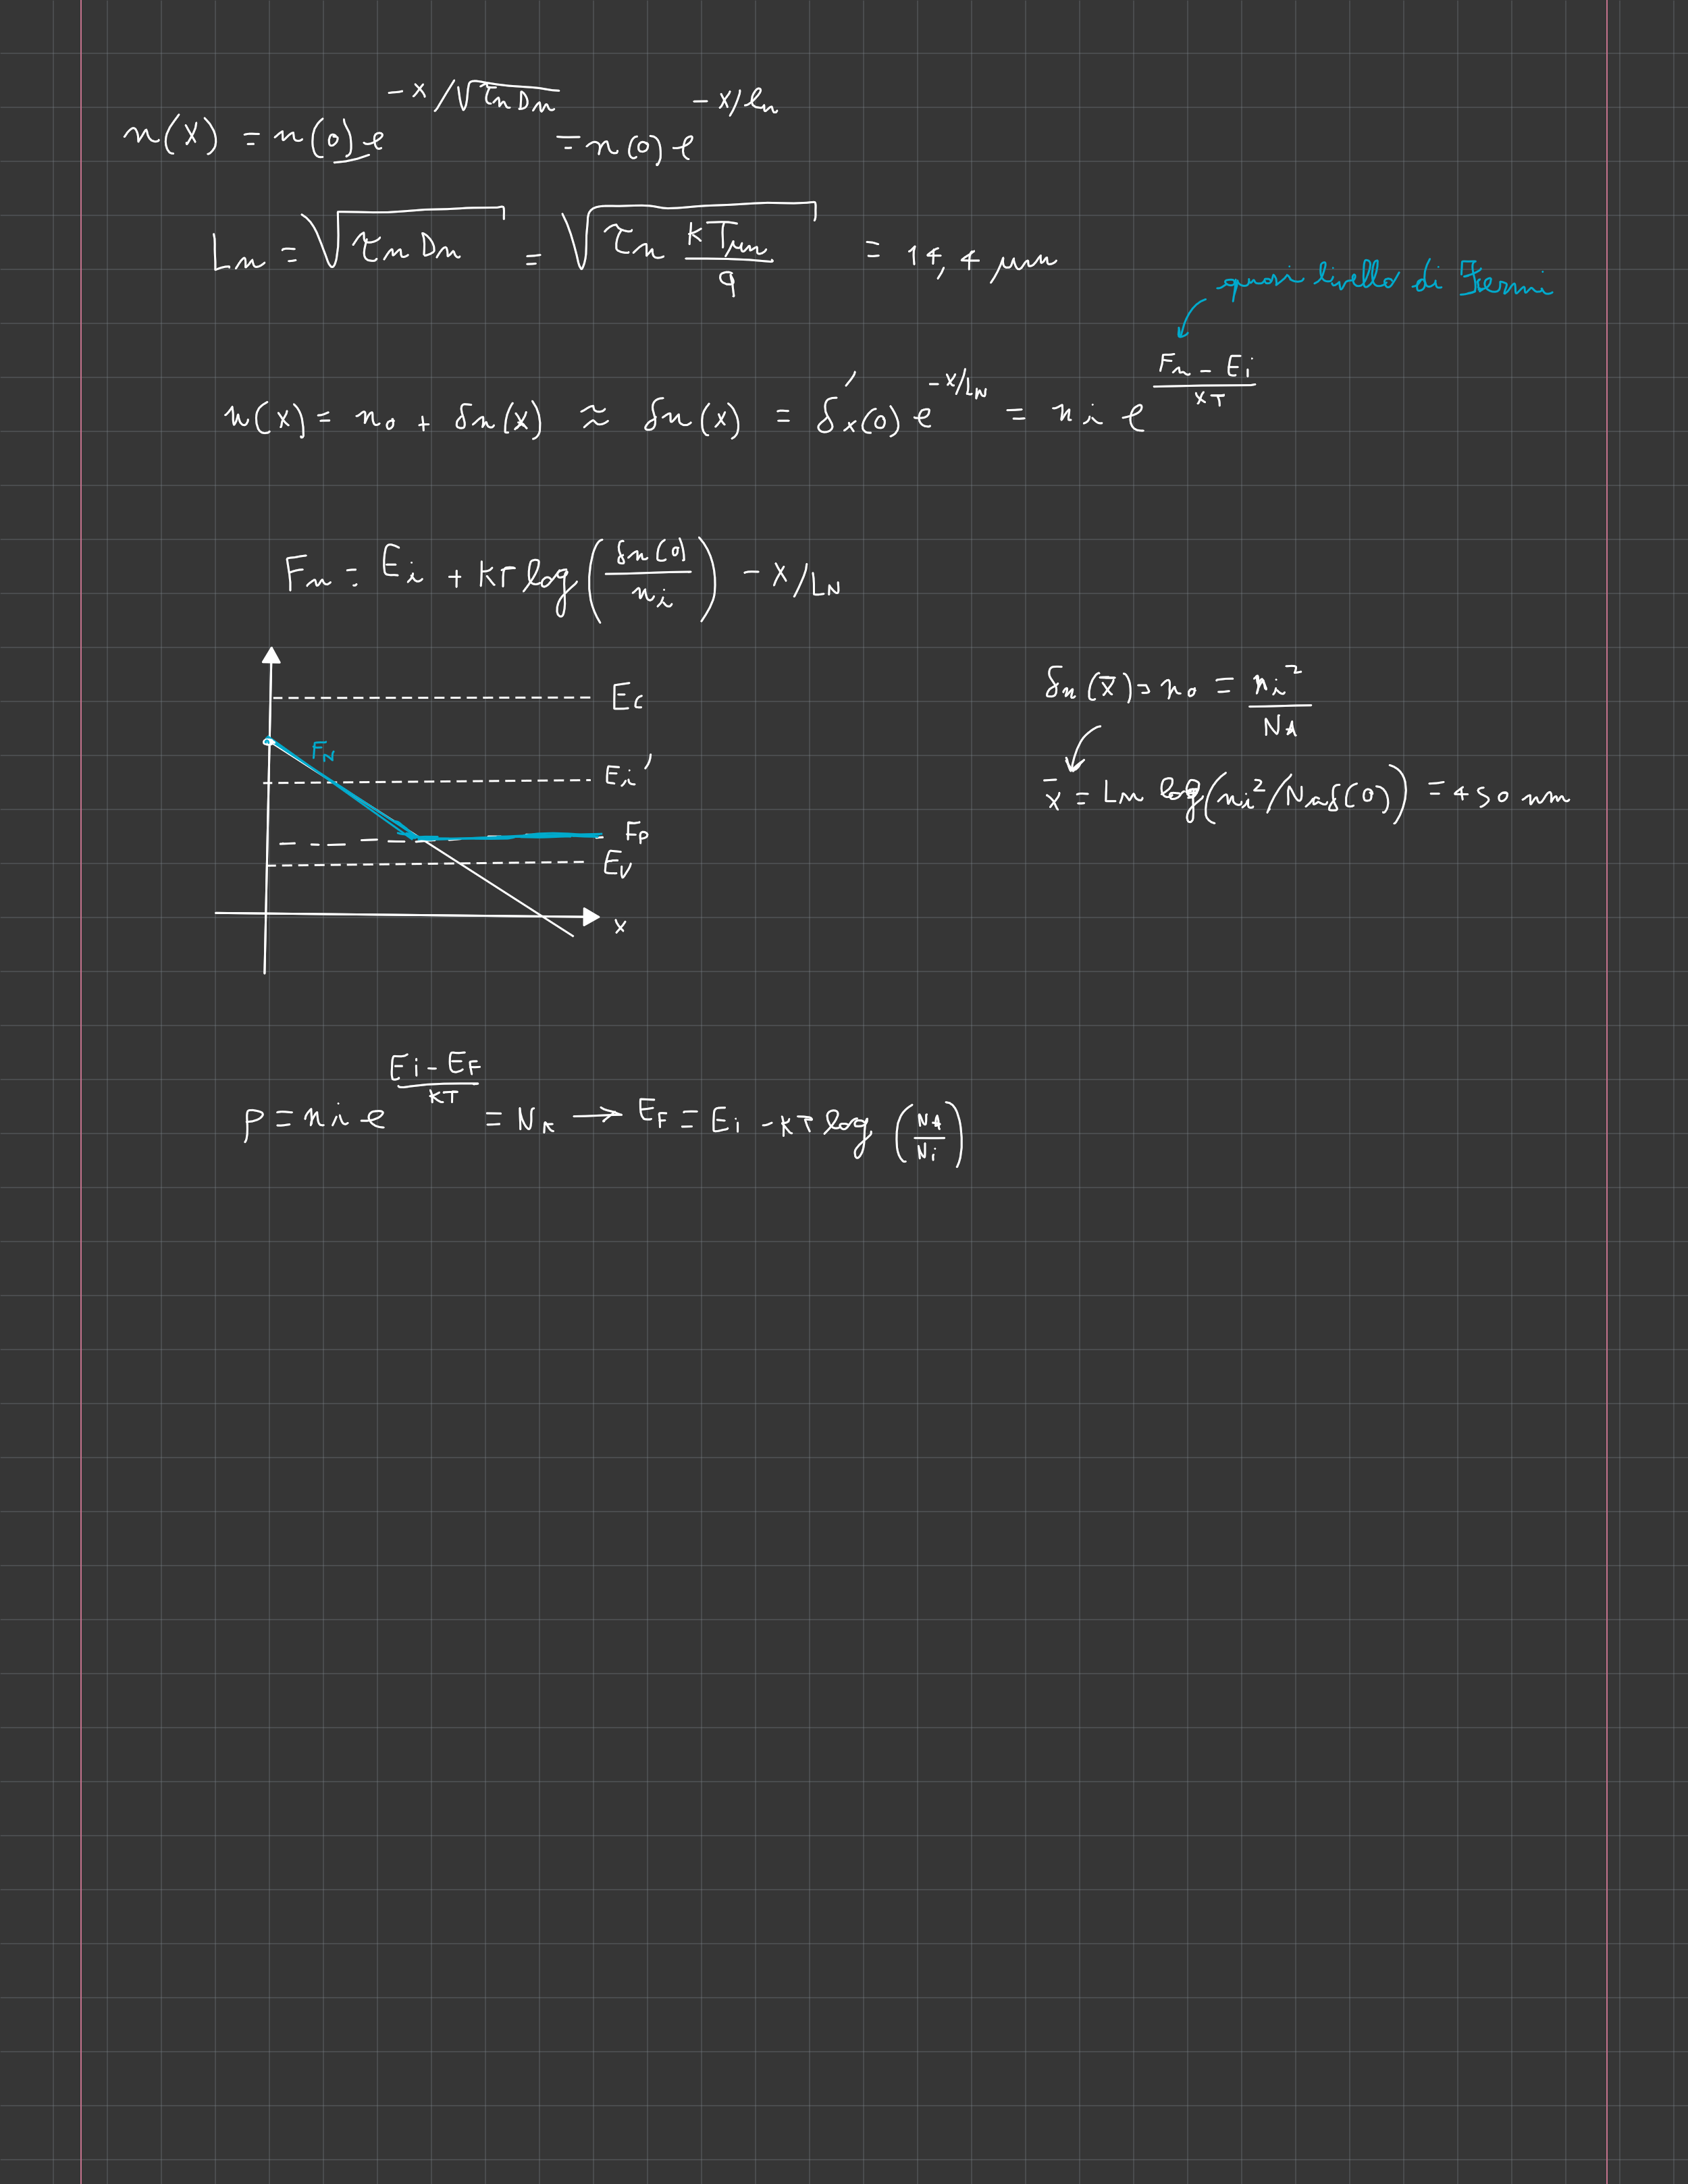 n(x) = n(0) e^{-x/√(τn Dn)} = n(0) e^{-x/ln}
Ln = √(τn Dn) = √(τn kTμn/q) = 14,4 μm
quasi livello di Fermi
n(x) = n0 + δn(x) ≈ δn(x) = δ'x(0) e^{-x/LN} = ni e^{(Fn - Ei)/KT}
Fn = Ei + KT log(δn(0)/ni) - x/LN
Ec
FN
Ei'
Fp
Ev
x
δn(x̄) = n0 = ni²/NA
x̄ = Ln log(ni²/NAδ(0)) = 450 nm
p = ni e^{(Ei - EF)/KT} = NA → EF = Ei - KT log(NA/Ni)